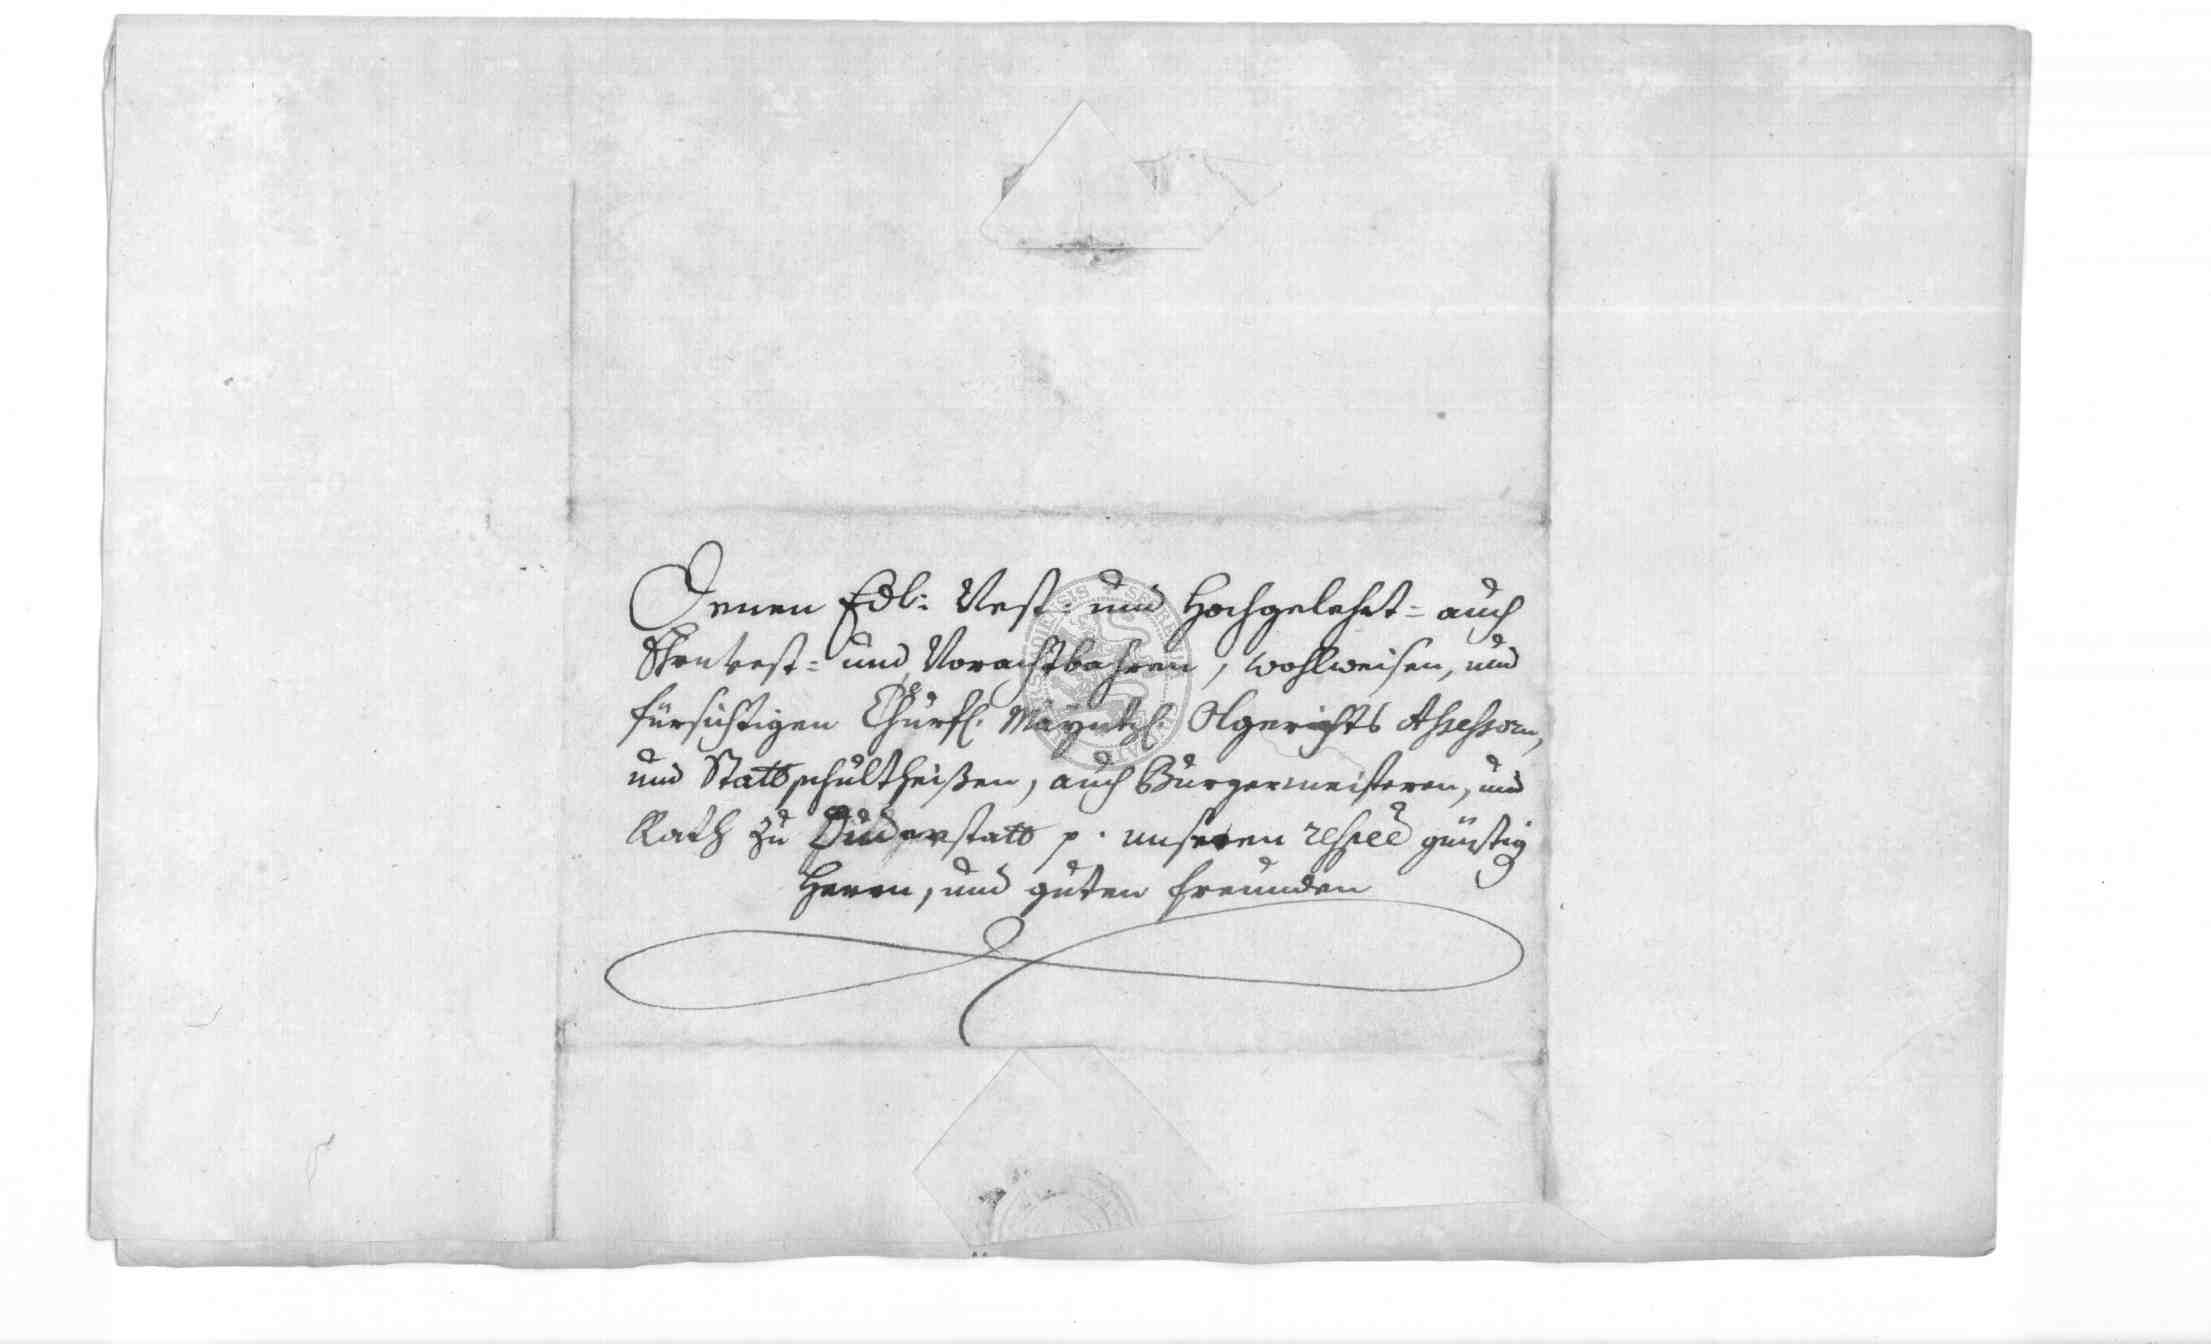 Denen Edl: Vest: und Hochgelehrt= auch
Ehrnvest= und Vorachtbahren, wohlweisen, und
fürsichtigen Churfl. Mayntzl. Assessorn,
und Stattschultheißen, auch Burgermeisteren, und
Rath zu Duderstatt p. unseren günstig
Herrn, und guten freunden